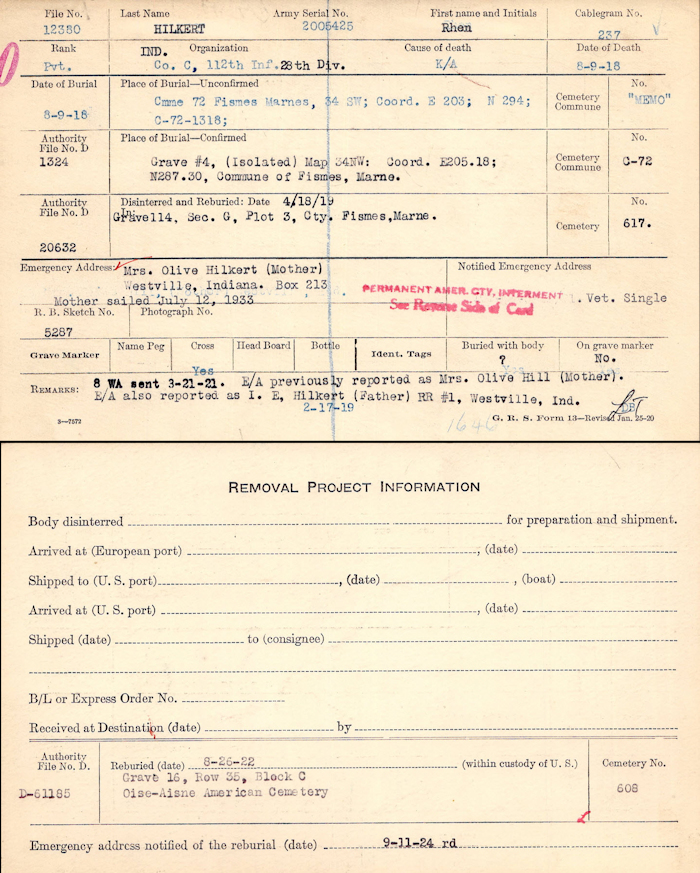 File No. Last Name Army Serial No. First name and Initials Cablegram No.
12380 HILKERT 2005425 Rhen 237 V
Rank IND. Organization Cause of death Date of Death
Pvt. Co. C, 112th Inf. 28th Div. K/A 8-9-18
Date of Burial Place of Burial—Unconfirmed No.
8-9-18 Cmme 72 Fismes Marnes, 34 SW; Coord. E 203; N 294; Cemetery Commune "MEMO"
C-72-1318;
Authority File No. D Place of Burial—Confirmed No.
1324 Grave #4, (Isolated) Map 34NW: Coord. E205.18; Cemetery Commune C-72
N287.30, Commune of Fismes, Marne.
Authority File No. D Disinterred and Reburied: Date 4/18/19 No.
In: Grave114, Sec. G, Plot 3, Cty. Fismes,Marne. Cemetery 617.
20632
Emergency Address: Mrs. Olive Hilkert (Mother) Notified Emergency Address
Westville, Indiana. Box 213
PERMANENT AMER. CTY, INTERMENT
See Reverse Side of Card
. Vet. Single
Mother sailed July 12, 1933
R. B. Sketch No. Photograph No.
5287
Grave Marker Name Peg Cross Head Board Bottle Ident. Tags Buried with body On grave marker
Yes ? No.
REMARKS: 8 WA sent 3-21-21. E/A previously reported as Mrs. Olive Hill (Mother).
E/A also reported as I. E, Hilkert (Father) RR #1, Westville, Ind.
2-17-19
3—7572 1646 G. R. S. Form 13—Revised Jan. 25-20
REMOVAL PROJECT INFORMATION
Body disinterred for preparation and shipment.
Arrived at (European port) , (date)
Shipped to (U. S. port) , (date) , (boat)
Arrived at (U. S. port) , (date)
Shipped (date) to (consignee)
B/L or Express Order No.
Received at Destination (date) by
Authority File No. D. Reburied (date) 8-26-22 (within custody of U. S.) Cemetery No.
D-61185 Grave 16, Row 35, Block C 608
Oise-Aisne American Cemetery
Emergency address notified of the reburial (date) 9-11-24 rd